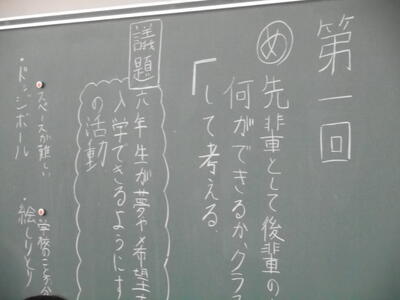 第一回
め 先輩として後輩の
何ができるか、クラ
して考える。
議題
六年生が夢や希望
入学できるようにす
の活動
・ドッジボール
スペースが難しい
・絵しりとり
学校のことが